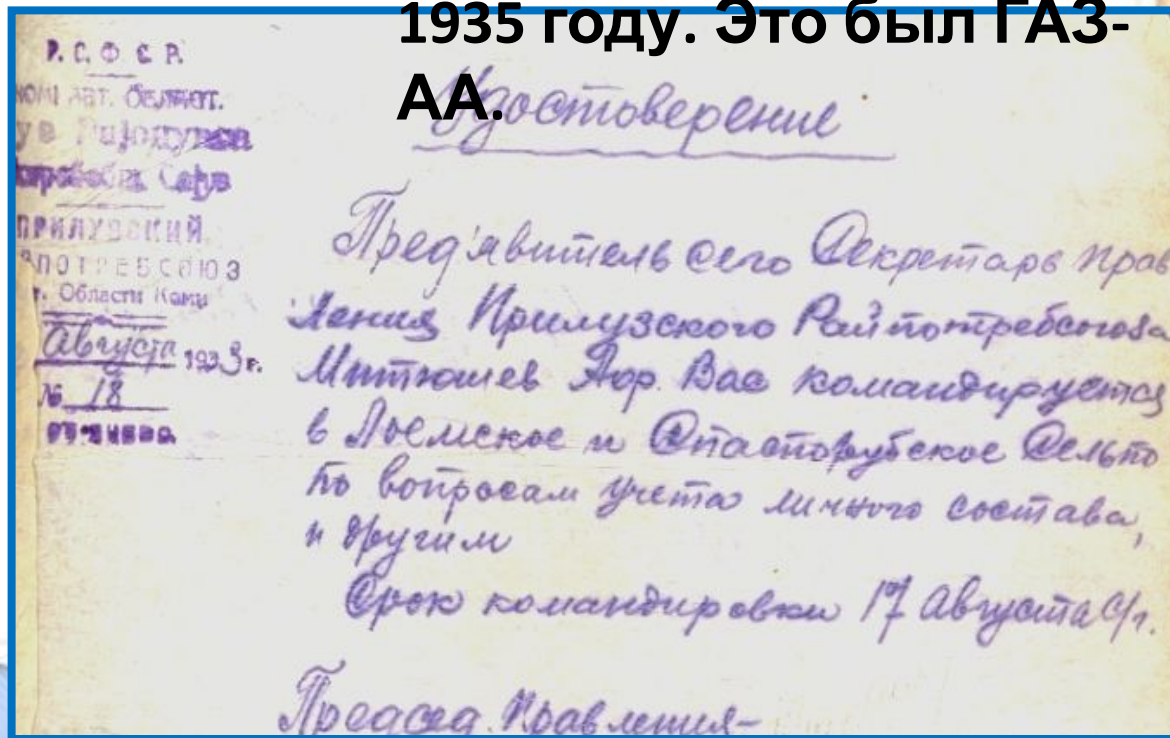 1935 году. Это был ГАЗ-
АА.
Р. С. Ф. С. Р.
ПРИЛУЗСКИЙ
ПОТРЕБСОЮЗ
Области Коми
Августа 1933 г.
№ 18
Удостоверение
Пред'явитель сего Секретарь прав
ления Прилузского Райпотребсоюза
Митюшев Вас командируется
в Лоемское и Спаспорубское Сельпо
по вопросам учета личного состава,
и другим
Срок командировки 17 Августа с/г.
Председ. Правления-